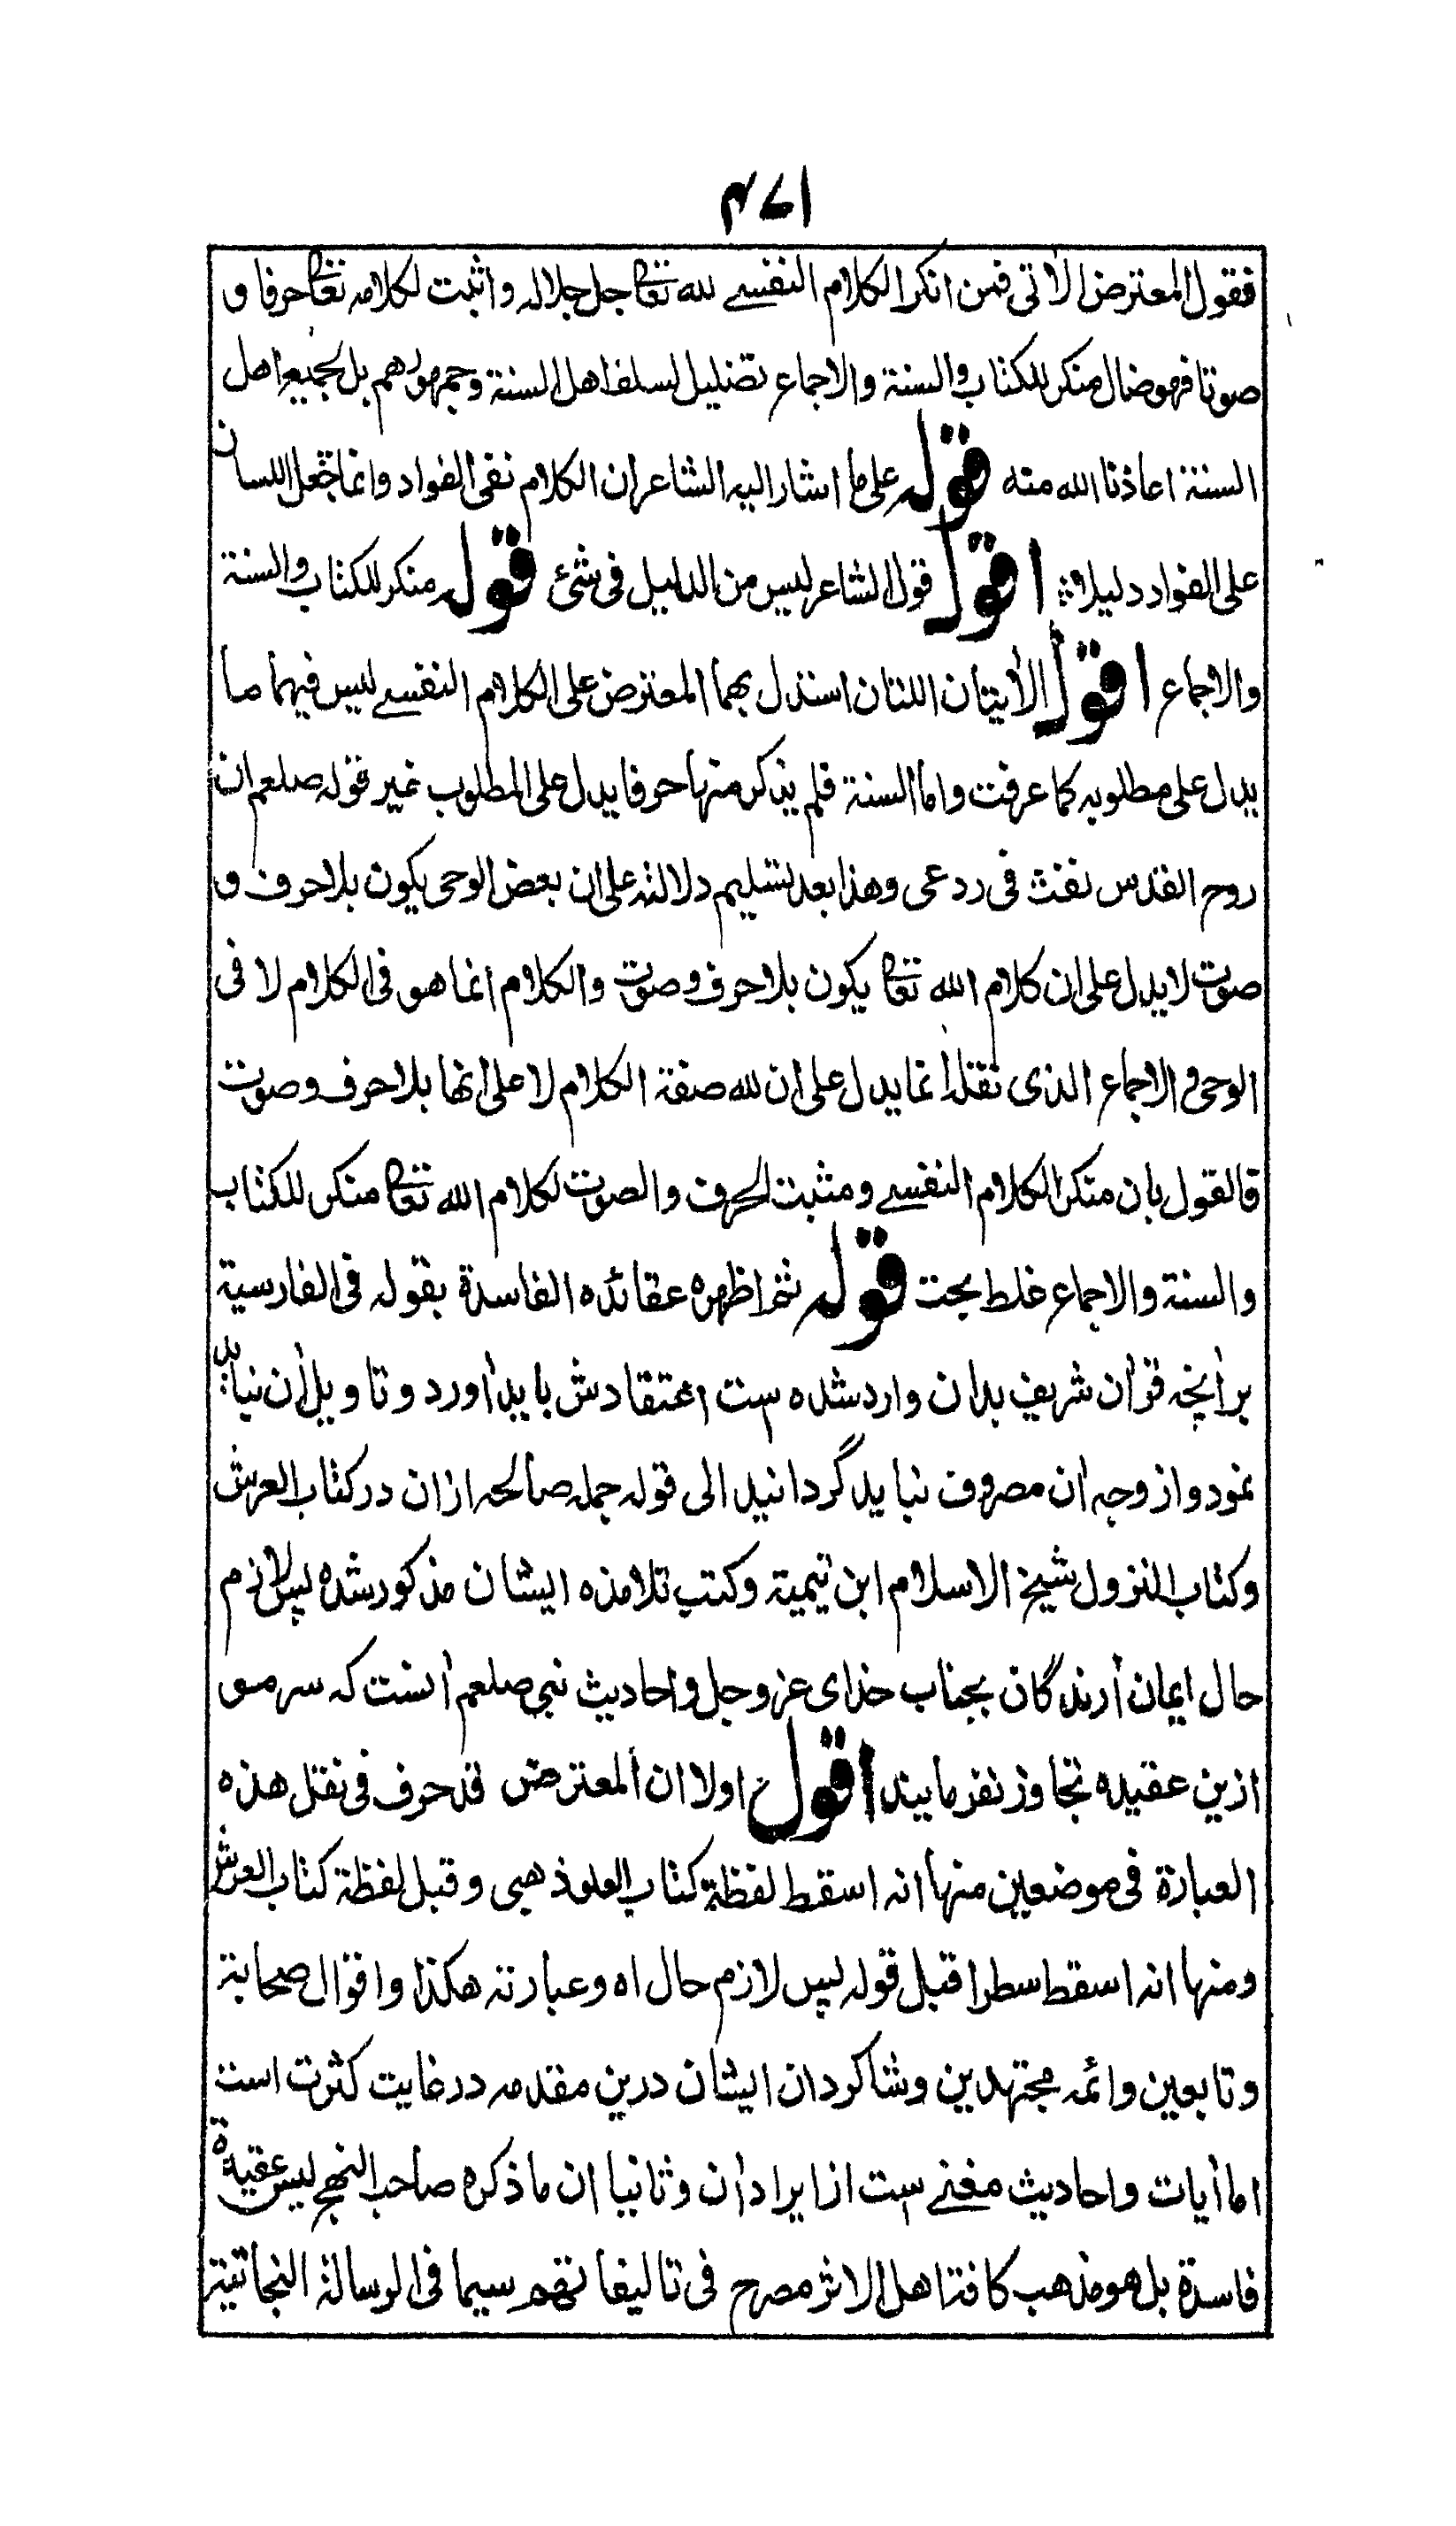 ۴۷۱
فقول المعترض الاتی فمن انكر الكلام النفسے لله تعالی جل جلاله واثبت لكلامه تعالی حرفا و
صوتا فهو ضال منكر للكتاب والسنة والاجماع تضلیل لسلف اهل السنة وجمهورهم بل لجمیع اهل
السنة اعاذنا الله منه قوله علی ما اشار الیه الشاعر ان الكلام نفی الفواد وانما جعل اللسان
علی الفواد دلیلا اقول قول الشاعر لیس من الدلیل فی شئ قوله منكر للكتاب والسنة
والاجماع اقول الأیتان اللتان استدل بهما المعترض علی الكلام النفسے لیس فیهما ما
یدل علی مطلوبه كما عرفت واما السنة فلم یذكر منها حرفا یدل علی المطلوب غیر قوله صلعم ان
روح القدس نفث فی ردعی وهذا بعد تسلیم دلالته علی ان بعض الوحی یكون بلا حرف و
صوت لا یدل علی ان كلام الله تعالی یكون بلا حرف وصوت والكلام انما هو فی الكلام لا فی
الوحی والاجماع الذی نقله انما یدل علی ان لله صفة الكلام لا علی انها بلا حرف وصوت
فالقول بان منكر الكلام النفسے ومثبت الحرف والصوت لكلام الله تعالی منكر للكتاب
والسنة والاجماع غلط بحت قوله ثم اظهره عقائده الفاسدة بقوله فی الفارسیة
برانچه قران شریف بدان وارد شده ست اعتقادش باید اورد وتاویل أن نباید
نمود واز وجه ان مصروف نباید گردانید الی قوله جمله صالحه ازان در كتاب العرش
وكتاب النزول شیخ الاسلام ابن تیمیة وكتب تلامذه ایشان مذكور شده پس لازم
حال ایمان أرندگان بجناب خدای عز وجل واحادیث نبی صلعم أنست كه سر مو
ازین عقیده تجاوز نفرمایند اقول اولا ان المعترض قد حرف فی نقل هذه
العبارة فی موضعین منها انه اسقط لفظة كتاب العلو ذهبی وقبل لفظة كتاب العرش
ومنها انه اسقط سطرا قبل قوله پس لازم حال اه وعبارته هكذا واقوال صحابة
وتابعین وائمه مجتهدین وشاكردان ایشان درین مقدمه در غایت كثرت است
اما أیات واحادیث مغنے ست از ایراد أن وثانیا ان ما ذكره صاحب النهج لیس عقیدة
فاسدة بل هو مذهب كافة اهل الاثر مصرح فی تالیفاتهم سیما فی الرسالة النجاتیة